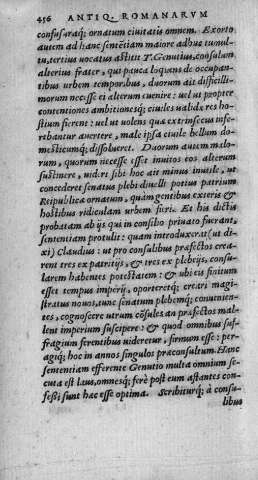 456 ANTIQ. ROMANARVM
confusaraq; ornatum ciuitatis omnem. Exorto
autem ad hanc sententiam maiore adhuc tumul-
tu, tertius uocatus astitit T. Genutius, consulum
alterius frater, qui pauca loquutus de occupan-
tibus urbem temporibus, duorum ait difficilli-
morum necesse ei alterum euenire: uel ut propter
contentiones ambitionesq; ciuiles uastæ res ho-
stium fierent: uel ut uolens quæ extrinsecus infe-
rebantur auertere, male ipsa ciuile bellum do-
mesticumq; dissolueret. Duorum autem malo-
rum, quorum necesse esset inuitos eos alterum
sustinere, uideri sibi hoc ait minus inutile, ut
concederet senatus plebi diuelli potius patriam
Reipublicæ ornatum, quàm gentibus exteris &
hostibus ridiculam urbem fieri. Et his dictis
probatam ab ijs qui in consilio priuato fuerant,
sententiam protulit: quam introduxerat (ut di-
xi) Claudius: ut pro consulibus præfectos crea-
rent tres ex patritijs, & tres ex plebeijs, consu-
larem habentes potestatem: & ubi eis finitum
esset tempus imperij, oporteretq; creari magi-
stratus nouos, tunc senatum plebemq; conuenien-
tes, cognoscere utrum cõsules an præfectos mal-
lent imperium suscipere: & quod omnibus suf-
fragium ferentibus uideretur, firmum esse: per-
agiq; hoc in annos singulos præconsultum. Hanc
sententiam efferente Genutio multa omnium se-
cuta est laus, omnesq; ferè post eum astantes con-
fessi sunt hac esse optima. Scribiturq; à consu-
libus